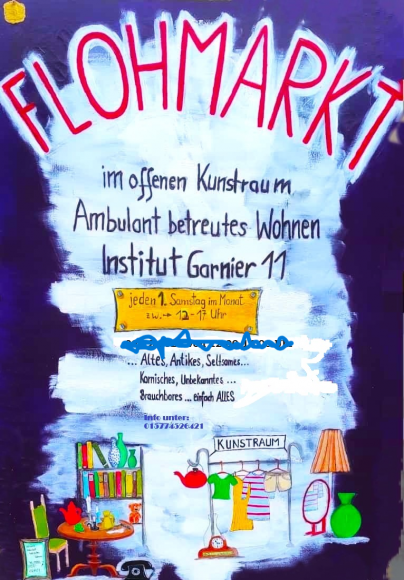 FLOHMARKT
im offenen Kunstraum
Ambulant betreutes Wohnen
Institut Garnier 11
jeden 1. Samstag im Monat
zw. → 12 - 17 Uhr
... Altes, Antikes, Seltsames...
Komisches, Unbekanntes ...
Brauchbares ... einfach ALLES
info unter:
015774526421
KUNSTRAUM